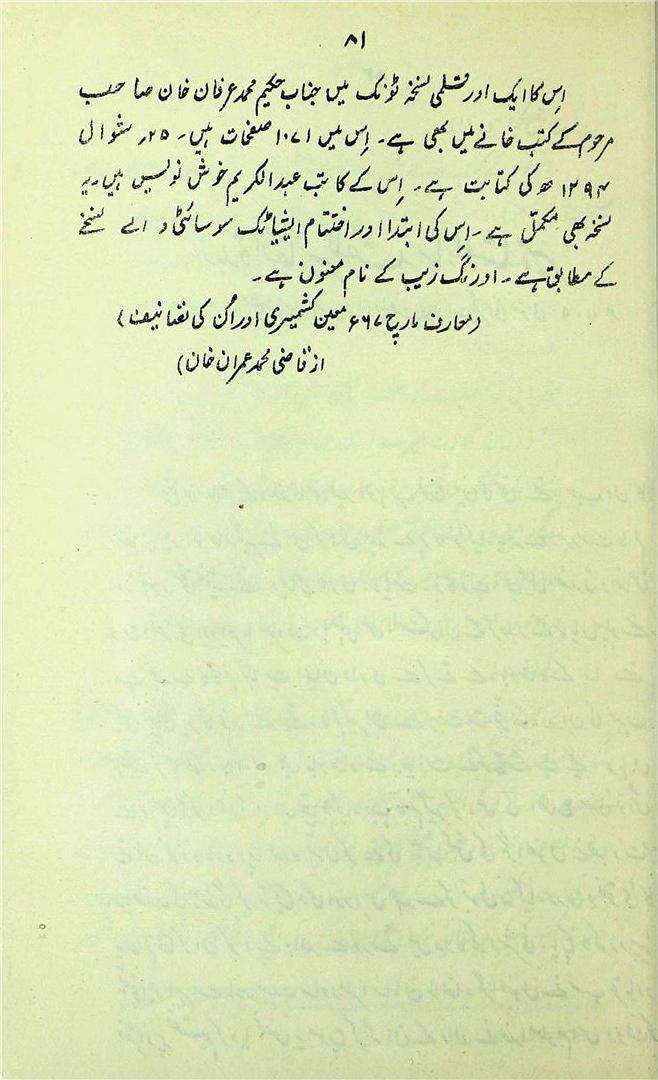 ۸۱
اِس کا ایک اور قلمی نسخہ ٹونک میں جناب حکیم محمد عرفان خان صاحب
مرحوم کے کتب خانے میں بھی ہے۔ اِس میں ۱۰۷۱ صفحات ہیں۔ ۲۵ر شوال
۱۲۹۴ ھ کی کتابت ہے۔ اِس کے کاتب عبدالکریم خوش نویس ہیں۔ یہ
نسخہ بھی مکمل ہے۔ اِس کی ابتدا اور اختتام ایشیاٹک سوسائٹی والے نسخے
کے مطابق ہے۔ اورنگ زیب کے نام معنون ہے۔
(معارف مارچ ۶۷ء معین کشمیری اور اُن کی تصانیف)
از قاضی محمد عمران خان)